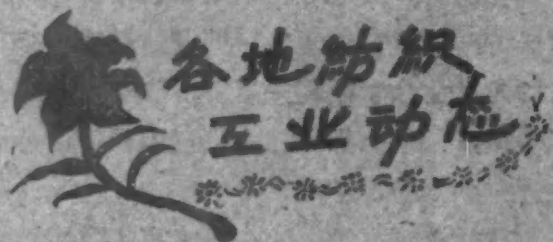 各地纺织
工业动态